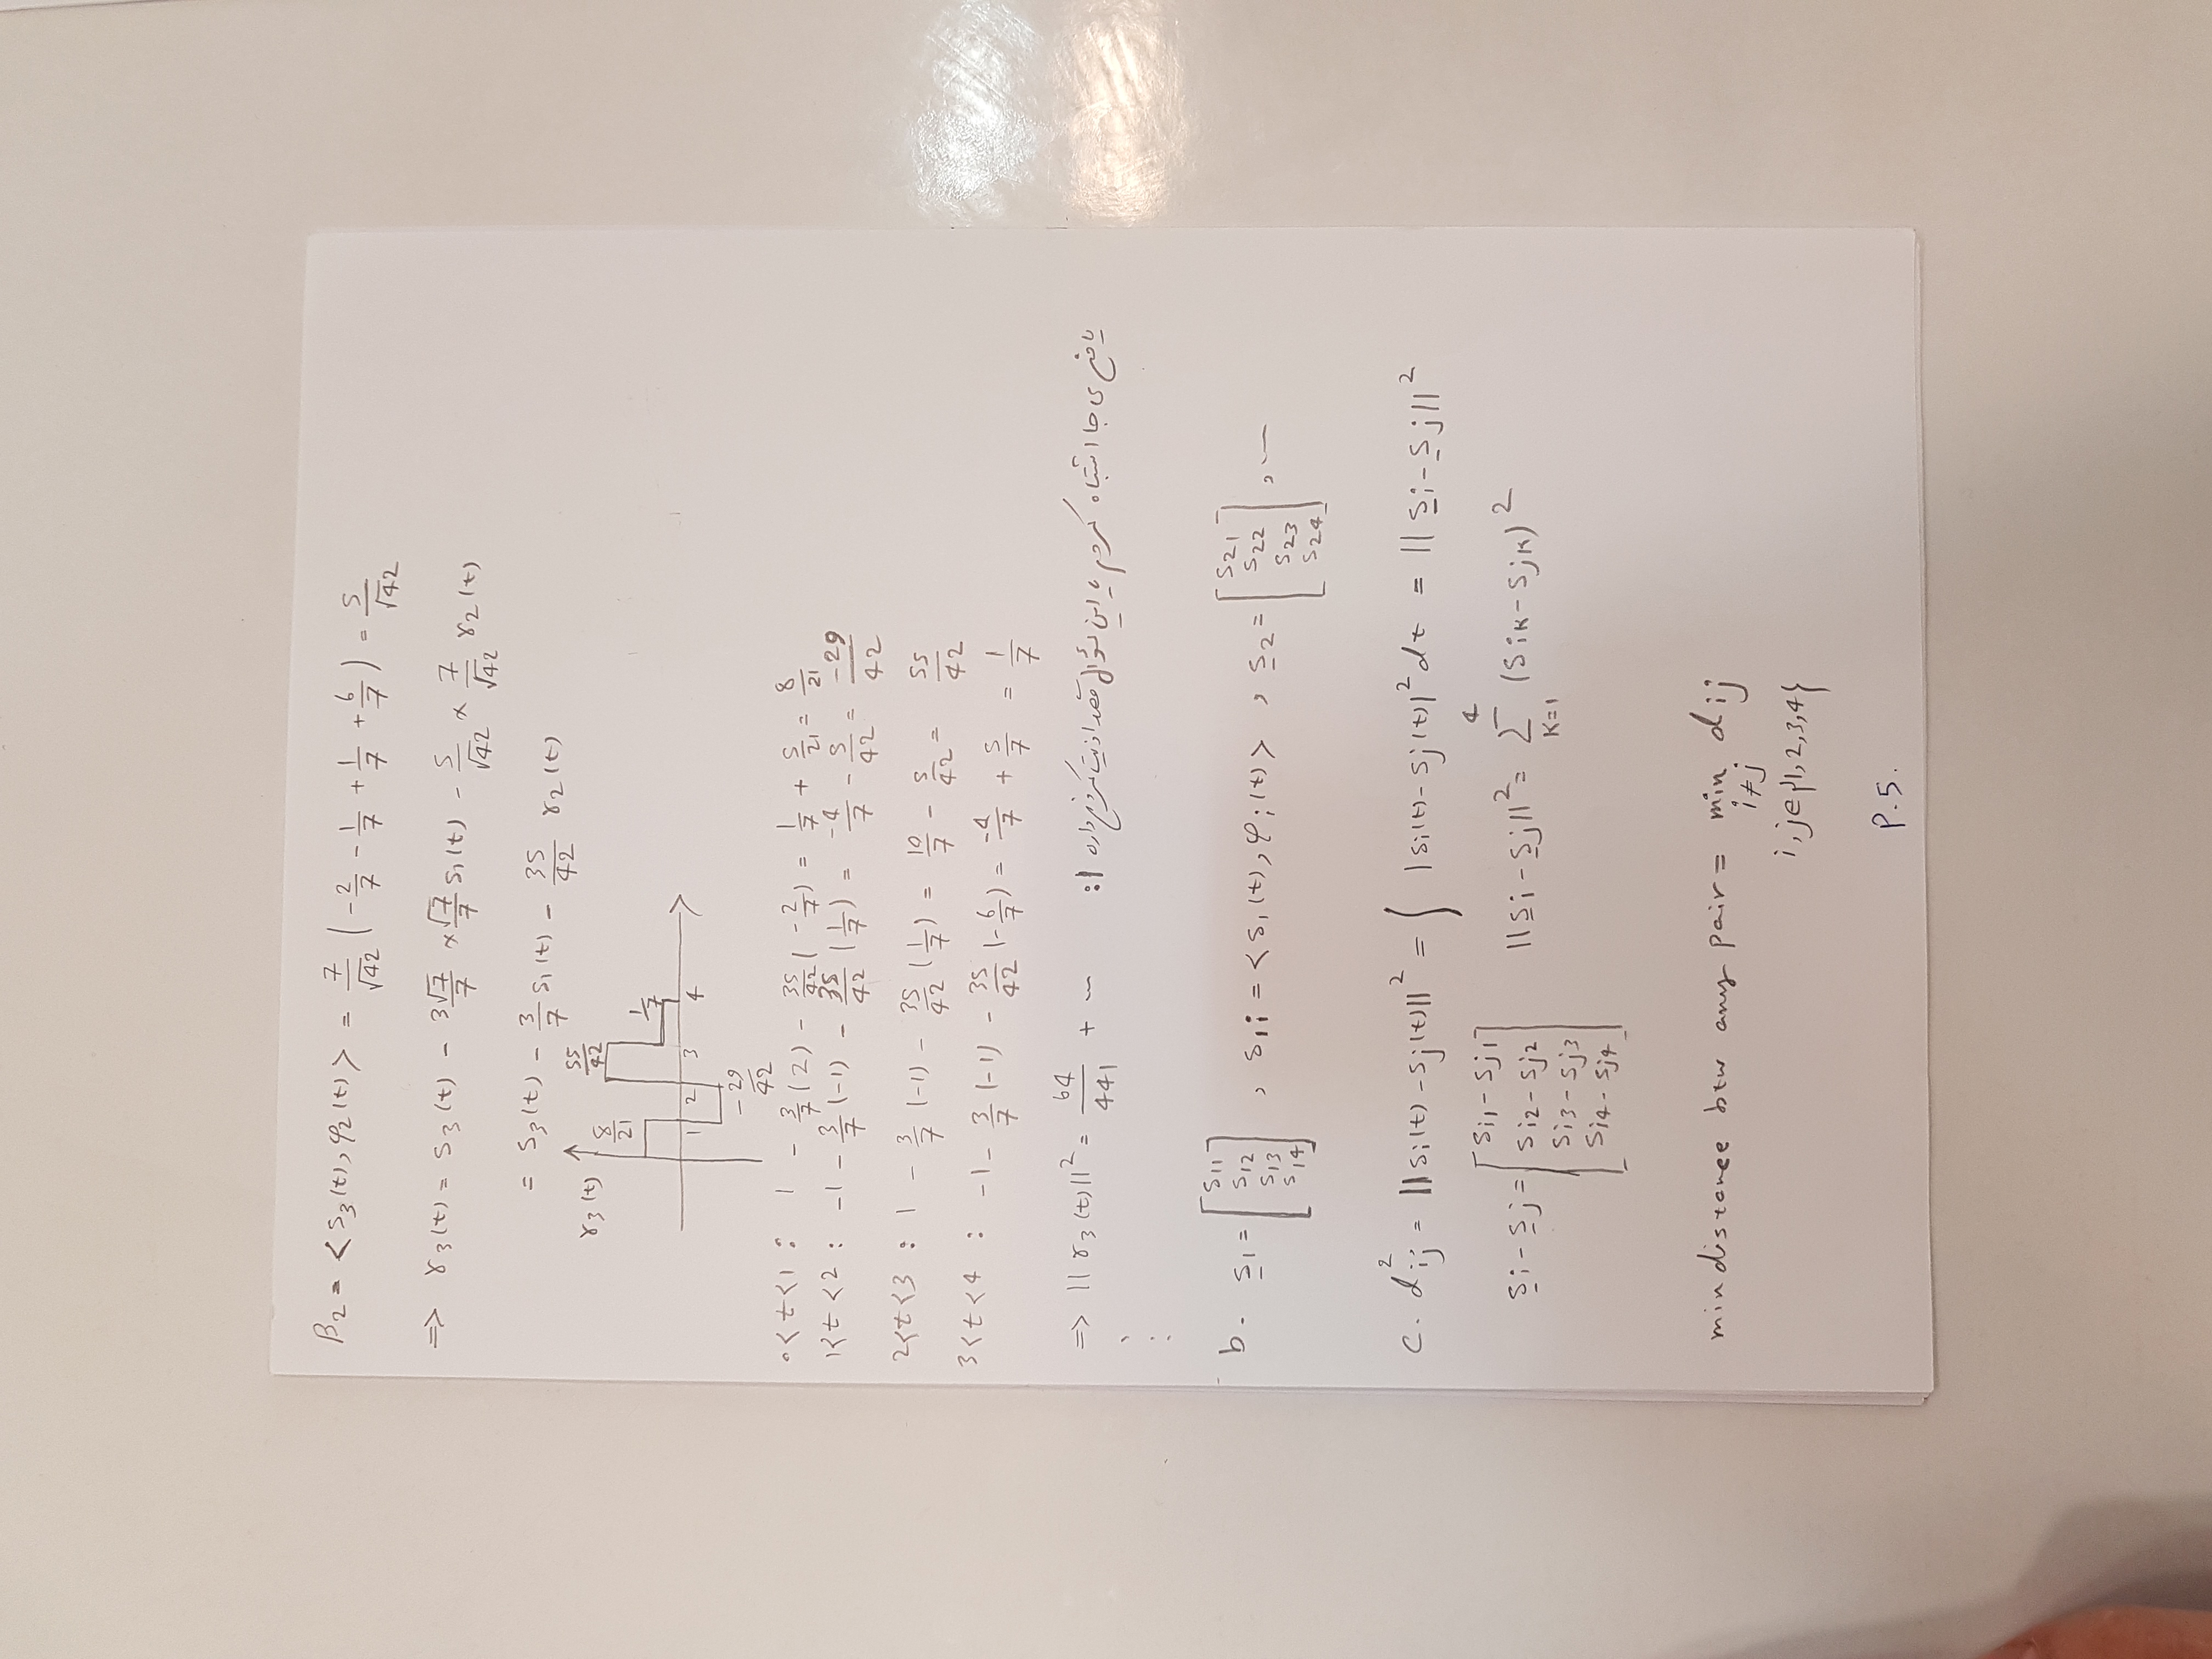 β₂ = <s₃(t), φ₂(t)> = 7/√42 (-2/7 - 1/7 + 1/7 + 6/7) = 5/√42
=> γ₃(t) = s₃(t) - 3√7/7 × √7/7 s₁(t) - 5/√42 × 7/√42 γ₂(t)
= s₃(t) - 3/7 s₁(t) - 35/42 γ₂(t)
γ₃(t)
8/21
55/42
1/7
1 2 3 4
-29/42
0<t<1 : 1 - 3/7 (2) - 35/42 (-2/7) = 1/7 + 5/21 = 8/21
1<t<2 : -1 - 3/7 (-1) - 35/42 (1/7) = -4/7 - 5/42 = -29/42
2<t<3 : 1 - 3/7 (-1) - 35/42 (1/7) = 10/7 - 5/42 = 55/42
3<t<4 : -1 - 3/7 (-1) - 35/42 (-6/7) = -4/7 + 5/7 = 1/7
=> ||γ₃(t)||² = 64/441 + ... یا من ی جا اشتباه کردم یا این سؤال قصد اذیت کردن داره :|
⋮
b. s₁ = [s₁₁ s₁₂ s₁₃ s₁₄] , s₁ᵢ = <s₁(t), φᵢ(t)> , s₂ = [s₂₁ s₂₂ s₂₃ s₂₄] , ...
c. d²ᵢⱼ = ||sᵢ(t) - sⱼ(t)||² = ∫ |sᵢ(t) - sⱼ(t)|² dt = ||sᵢ - sⱼ||²
sᵢ - sⱼ = [sᵢ₁ - sⱼ₁ sᵢ₂ - sⱼ₂ sᵢ₃ - sⱼ₃ sᵢ₄ - sⱼ₄] ||sᵢ - sⱼ||² = Σ_{k=1}^{4} (sᵢₖ - sⱼₖ)²
min distance btw any pair = min dᵢⱼ
i≠j
i,j∈{1,2,3,4}
P.5.